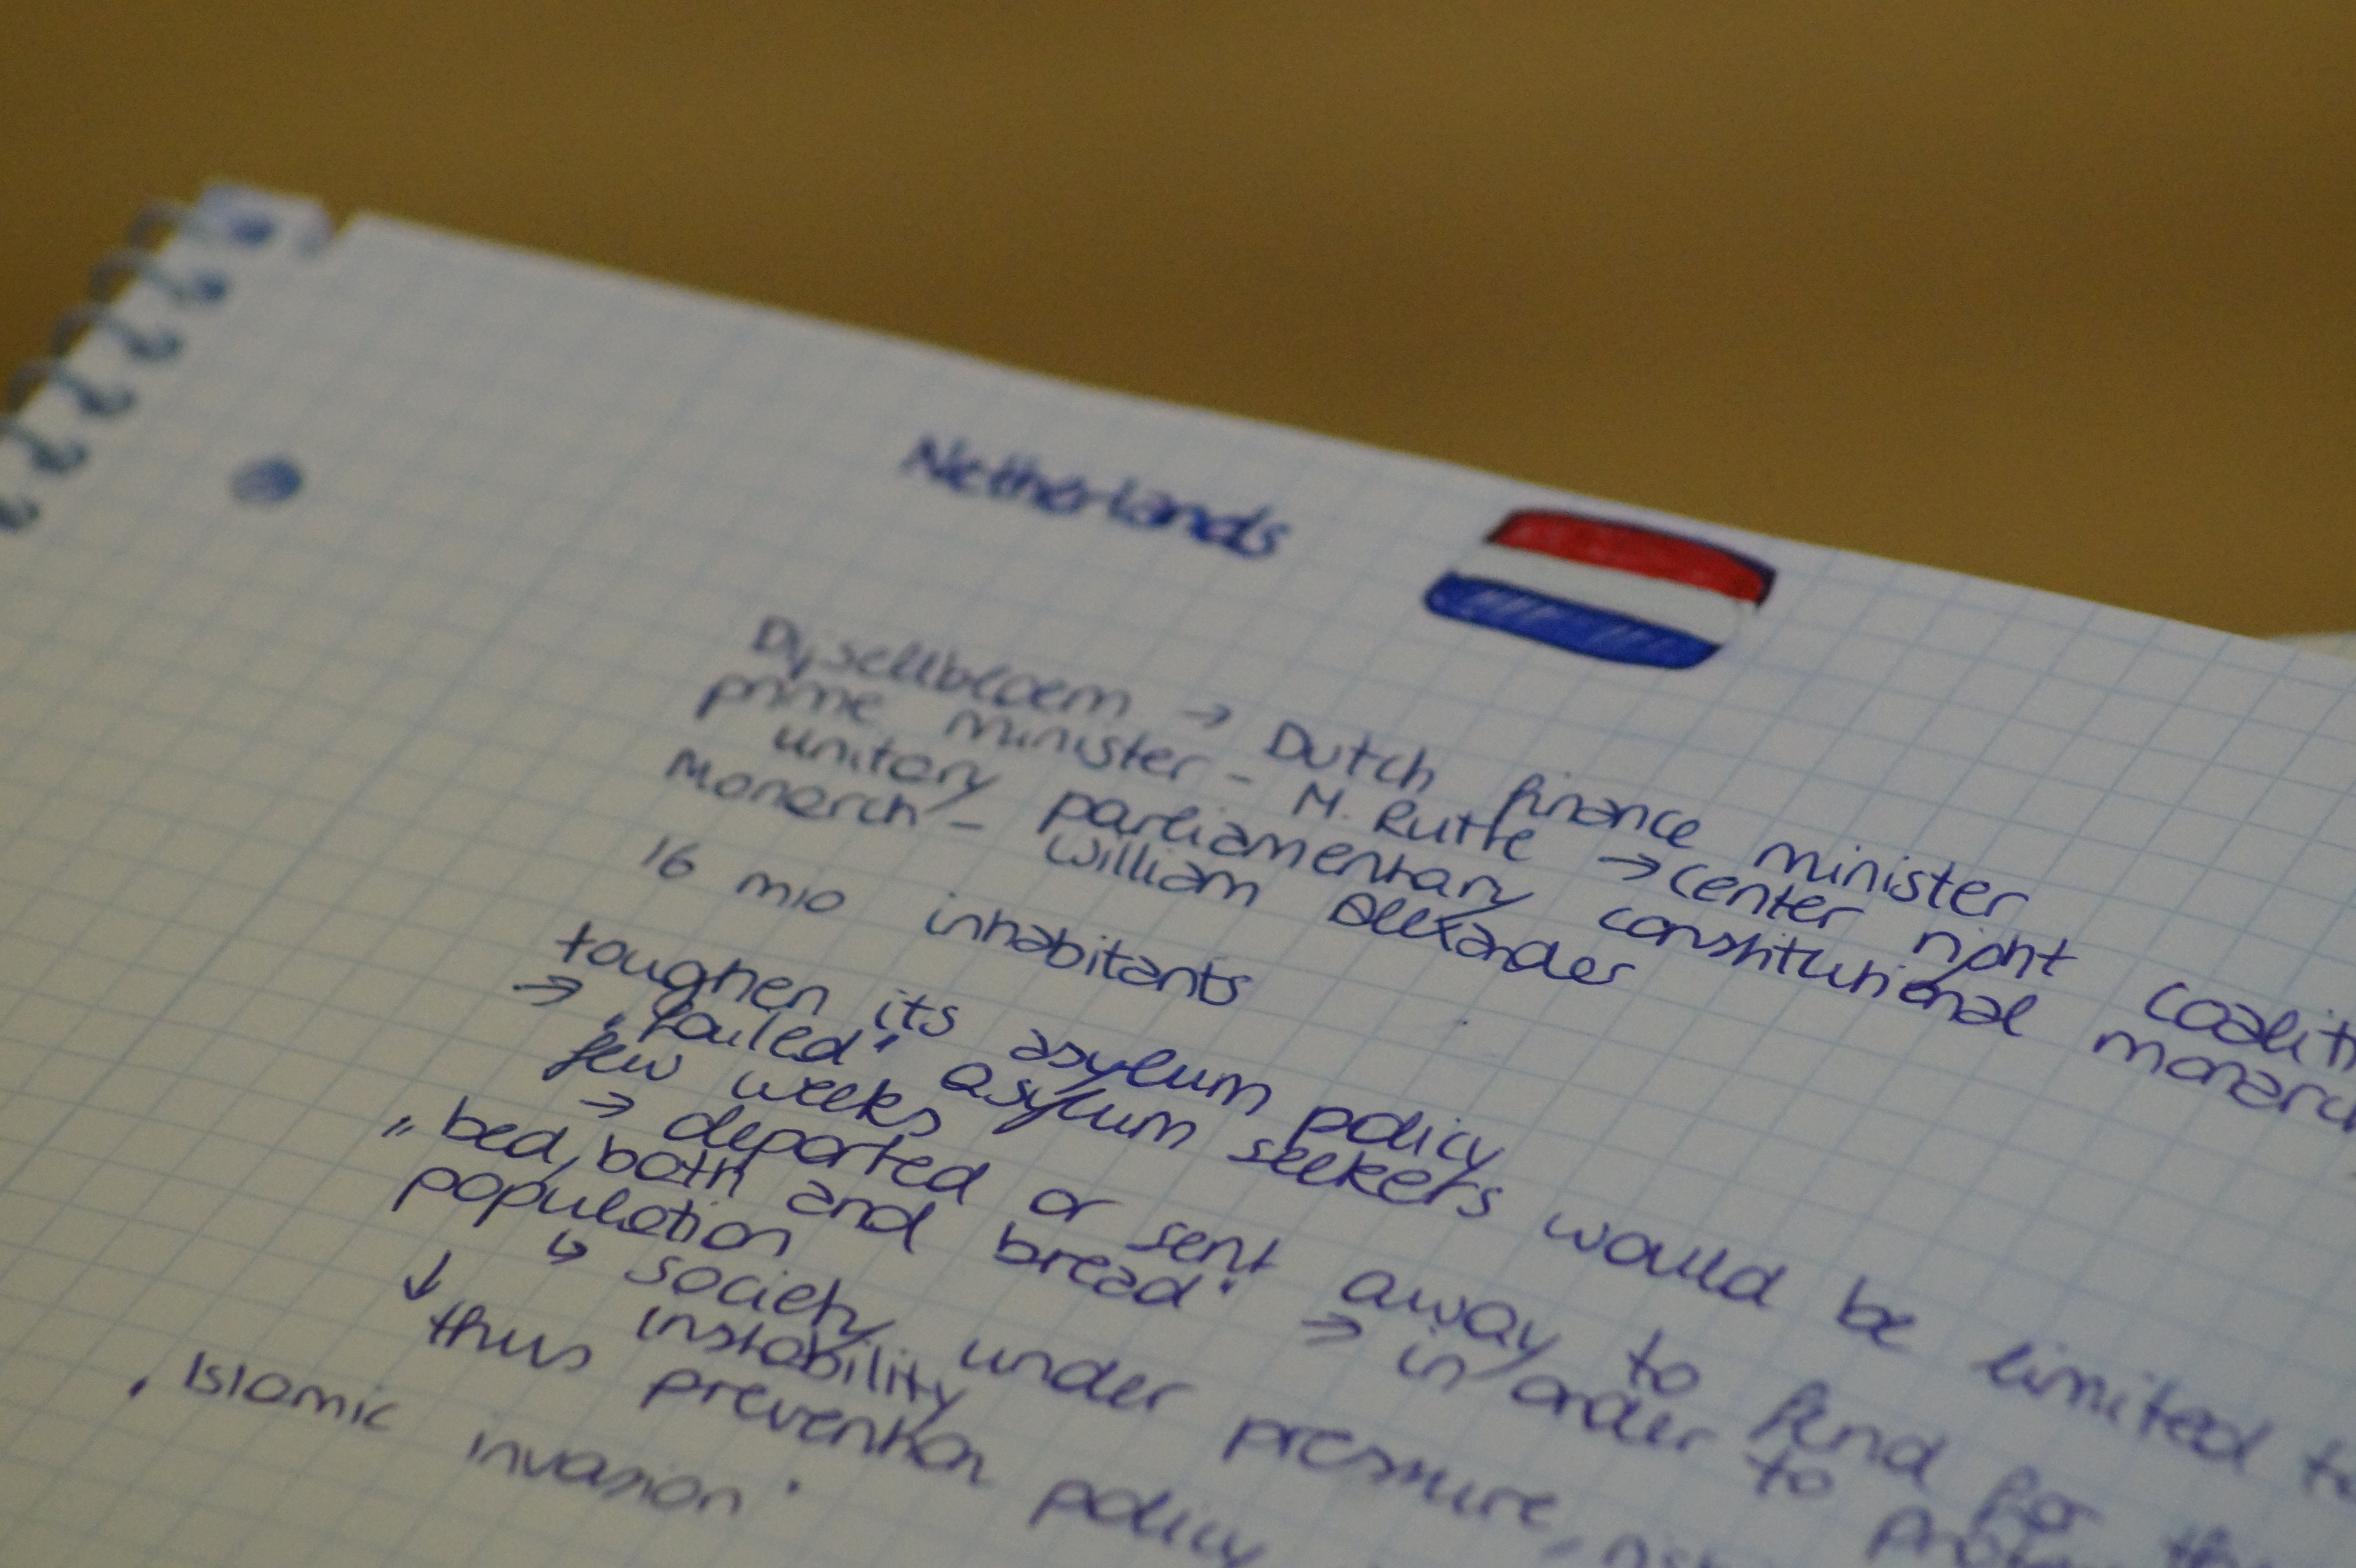 Netherlands
Dysellbloem → Dutch finance minister
prime minister – M. Rutte → center right coaliti
unitary parliamentary constitutional monarc
Monarch – William Alexander
16 mio inhabitants
toughen its asylum policy
→ „failed" asylum seekers would be limited to
few weeks
→ deported or sent away to fend for th
„bed, bath and bread" → in order to prote
population
↳ society under pressure,
instability
↓ thus prevention policy
„Islamic invasion"